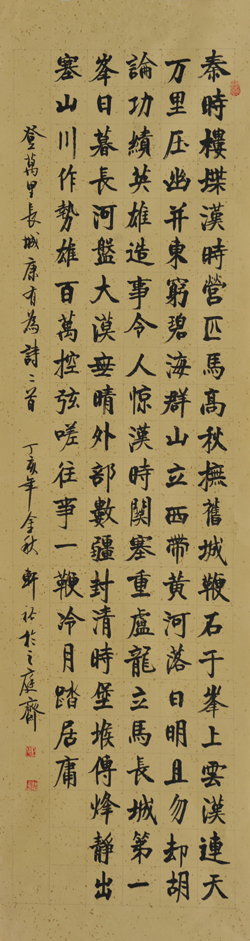 秦時樓堞漢時營匹馬高秋撫舊城鞭石千峯上雲漢連天
万里压幽并東窮碧海群山立西帶黄河落日明且勿却胡
論功績英雄造事令人惊漢時関塞重盧龍立馬長城第一
峯日暮長河盤大漠無晴外部數疆封清時堡堠傳烽靜出
塞山川作勢雄百萬控弦嗟往事一鞭冷月踏居庸
登萬里長城康有為詩二首 丁亥年金秋 軒於之庭齋